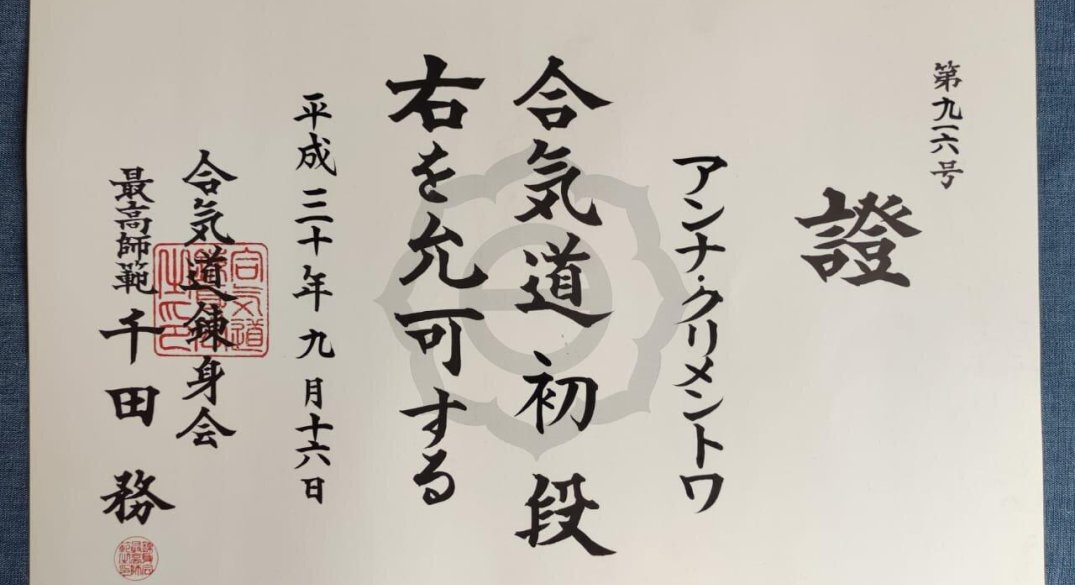 第九一六号
證
アンナ・クリメントワ
合気道初段
右を允可する
平成三十年九月十六日
合気道錬身会
最高師範 千田務